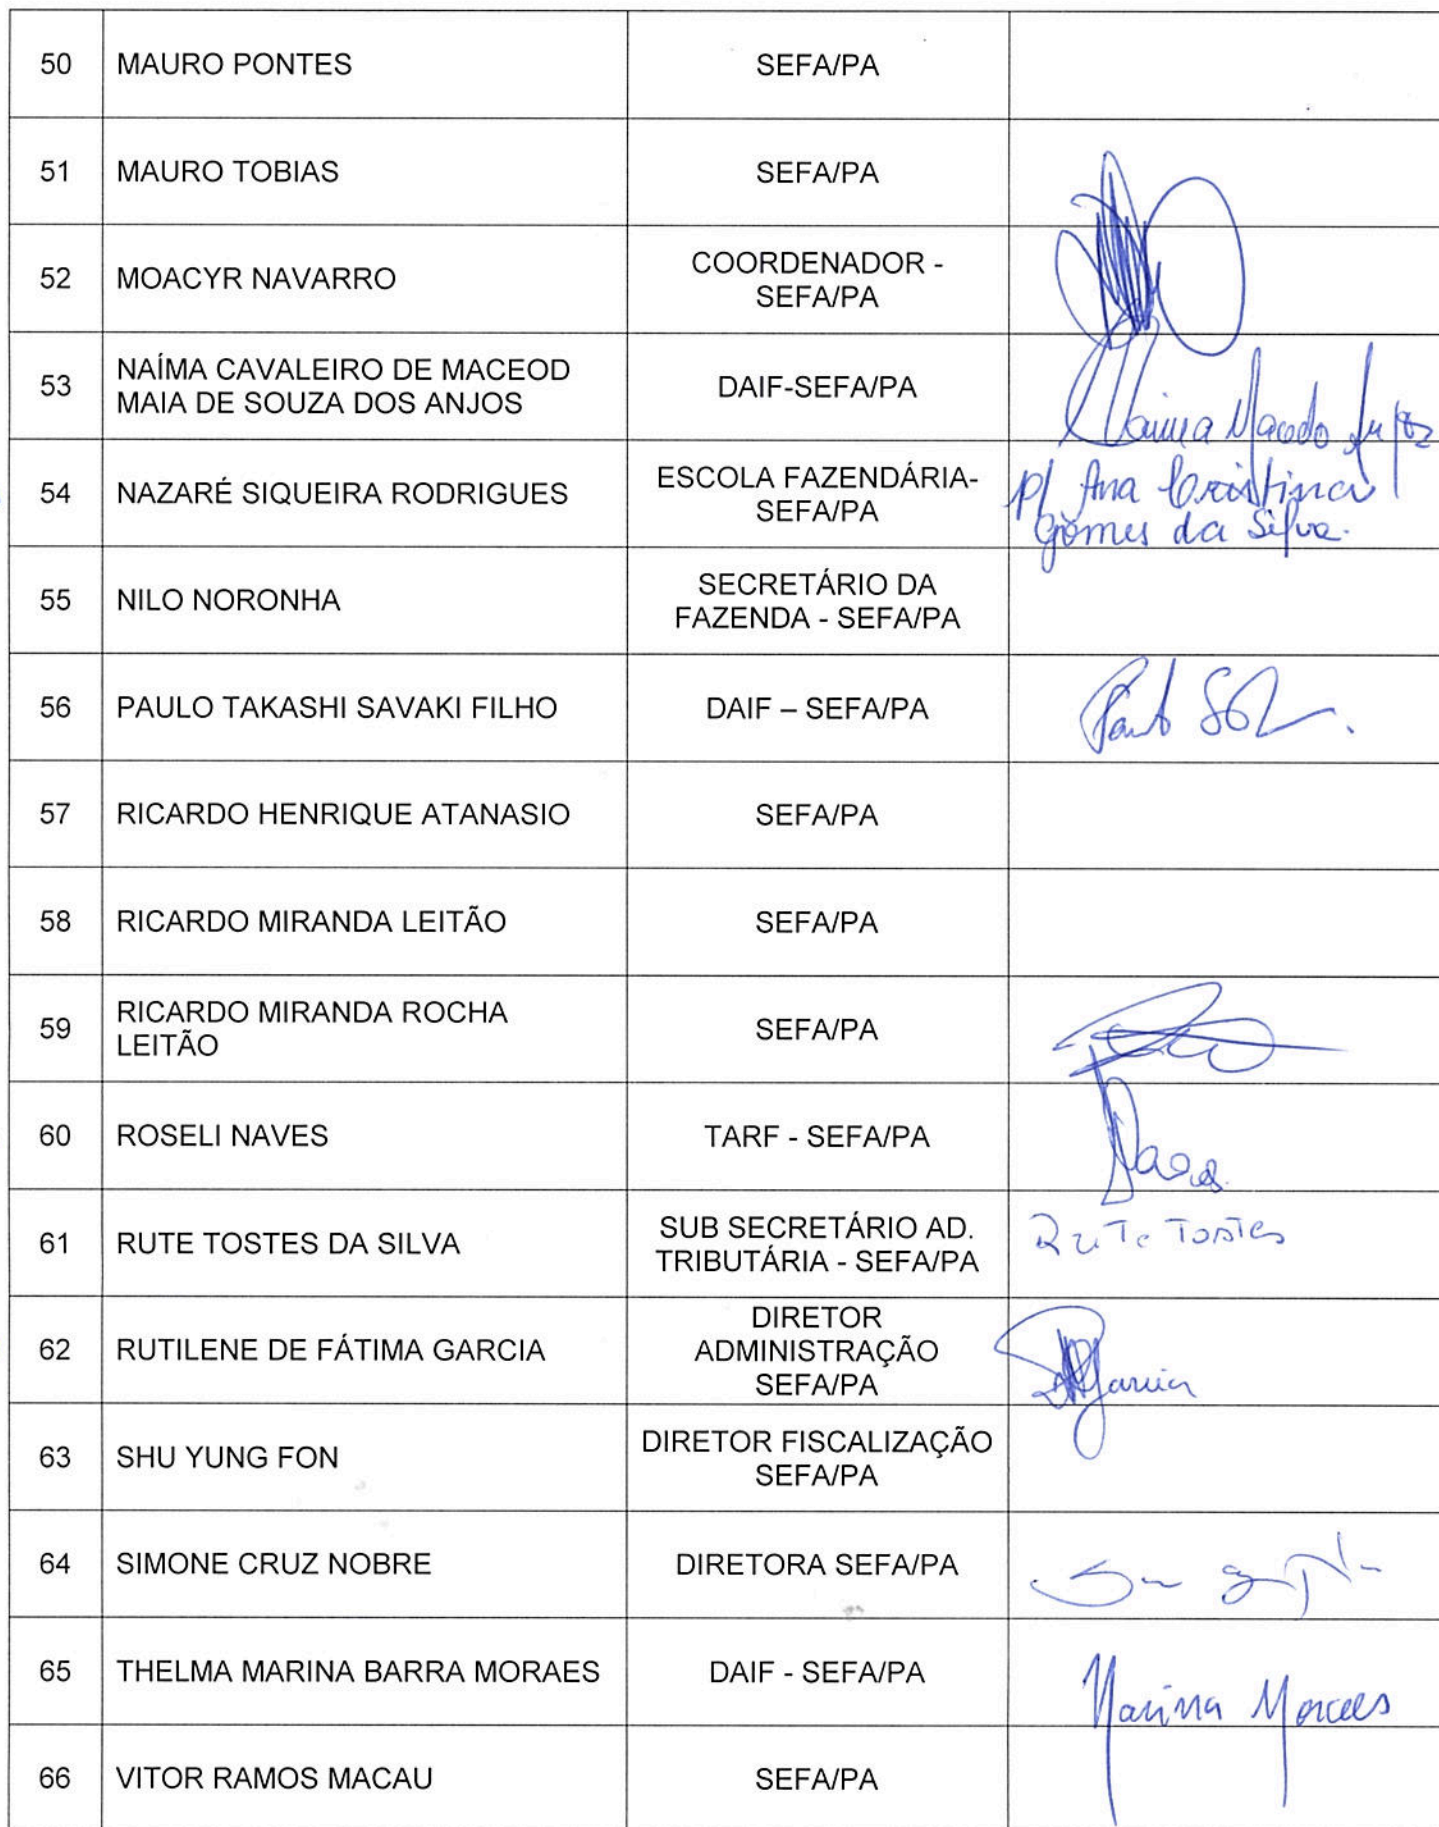 50 MAURO PONTES SEFA/PA
51 MAURO TOBIAS SEFA/PA
52 MOACYR NAVARRO COORDENADOR -
SEFA/PA
53 NAÍMA CAVALEIRO DE MACEOD
MAIA DE SOUZA DOS ANJOS
DAIF-SEFA/PA
Naima Macedo
54 NAZARÉ SIQUEIRA RODRIGUES
ESCOLA FAZENDÁRIA-
SEFA/PA
p/ Ana Cristina
Gomes da Silva.
55 NILO NORONHA
SECRETÁRIO DA
FAZENDA - SEFA/PA
56 PAULO TAKASHI SAVAKI FILHO DAIF – SEFA/PA
57 RICARDO HENRIQUE ATANASIO SEFA/PA
58 RICARDO MIRANDA LEITÃO SEFA/PA
59 RICARDO MIRANDA ROCHA
LEITÃO
SEFA/PA
60 ROSELI NAVES TARF - SEFA/PA
61 RUTE TOSTES DA SILVA
SUB SECRETÁRIO AD.
TRIBUTÁRIA - SEFA/PA
Rute Tostes
62 RUTILENE DE FÁTIMA GARCIA
DIRETOR
ADMINISTRAÇÃO
SEFA/PA
Garcia
63 SHU YUNG FON
DIRETOR FISCALIZAÇÃO
SEFA/PA
64 SIMONE CRUZ NOBRE DIRETORA SEFA/PA
65 THELMA MARINA BARRA MORAES DAIF - SEFA/PA Marina Moraes
66 VITOR RAMOS MACAU SEFA/PA